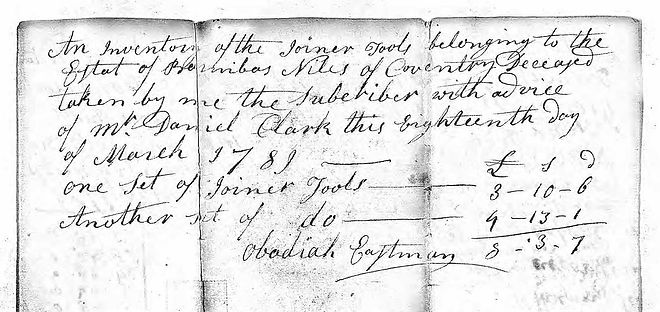 An Inventory of the Joiner Tools belonging to the
Estat of Barnibas Niles of Coventry Deceased
taken by me the Subcriber with advice
of Mr. Daniel Clark this Eighteenth day
of March 1781 £ s d
one Set of Joiner Tools — 3-10-6
Another set of do — 4-13-1
Obadiah Eastman 8-3-7